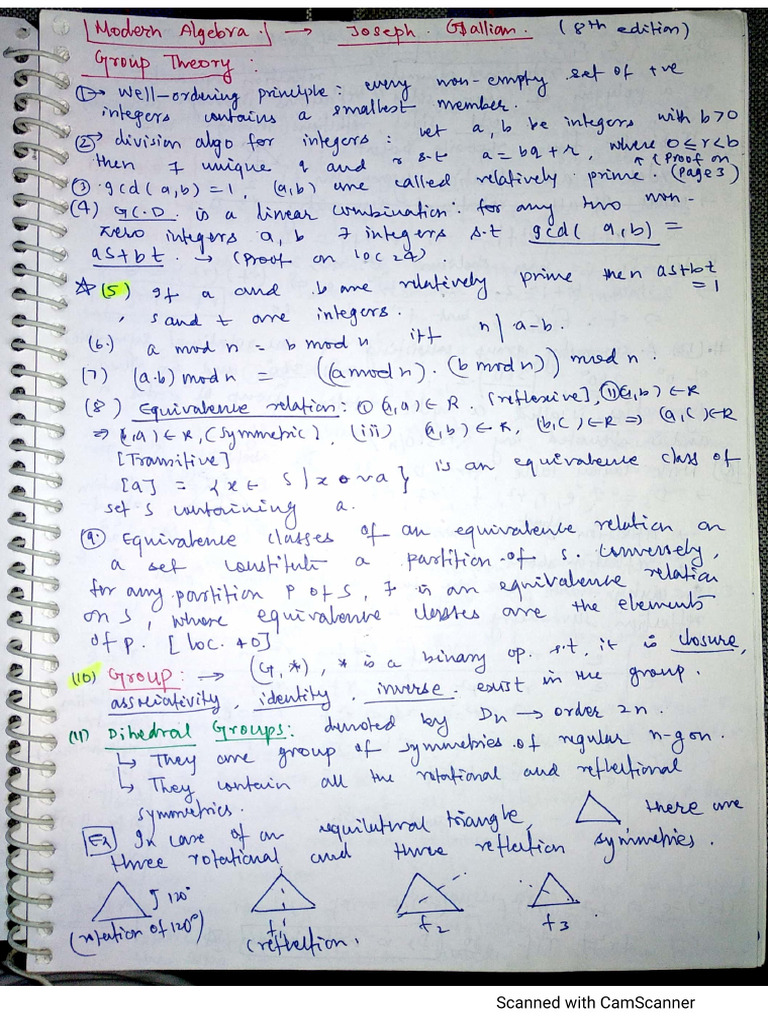 Modern Algebra. → Joseph. Gallian. (8th edition)
Group Theory :
① → Well-ordering principle : every non-empty set of +ve
integers contains a smallest member.
② → division algo for integers : let a, b be integers with b>0
then ∃ unique q and r s.t a = bq + r, where 0 ≤ r < b
↑ (Proof on
③ gcd(a,b) = 1 (a,b) are called relatively prime. (page 3)
(4) G.C.D is a linear combination. for any two non-
zero integers a, b ∃ integers s.t gcd(a,b) =
as+bt. → (Proof on loc 24).
☆ (5) If a and b are relatively prime then as+bt
= 1
, s and t are integers.
(6.) a mod n = b mod n iff n | a-b.
(7) (a.b) mod n = ((a mod n). (b mod n)) mod n.
(8) Equivalence relation: ① (a,a) ∈ R. [reflexive], ⑪ (a,b) ∈ R
⇒ (b,a) ∈ R, (symmetric), (iii) (a,b) ∈ R, (b,c) ∈ R ⇒ (a,c) ∈ R
[Transitive]
[a] = {x ∈ S | x ~ a} is an equivalence class of
set S containing a.
⑨. Equivalence classes of an equivalence relation on
a set constitute a partition of S. Conversely,
for any partition P of S, ∃ is an equivalence relation
on S, where equivalence classes are the elements
of P. [loc. 40]
(10) Group: → (G, *), * is a binary op. s.t, it is closure,
associativity, identity, inverse. exist in the group.
(11) Dihedral Groups: denoted by Dn → order 2n.
↳ They are group of symmetries of regular n-gon.
↳ They contain all the rotational and reflectional
symmetries.
Ex In case of an equilateral triangle, there are
three rotational and three reflection symmetries.
120°
(rotation of 120°)
f1
(reflection.
f2
f3
Scanned with CamScanner